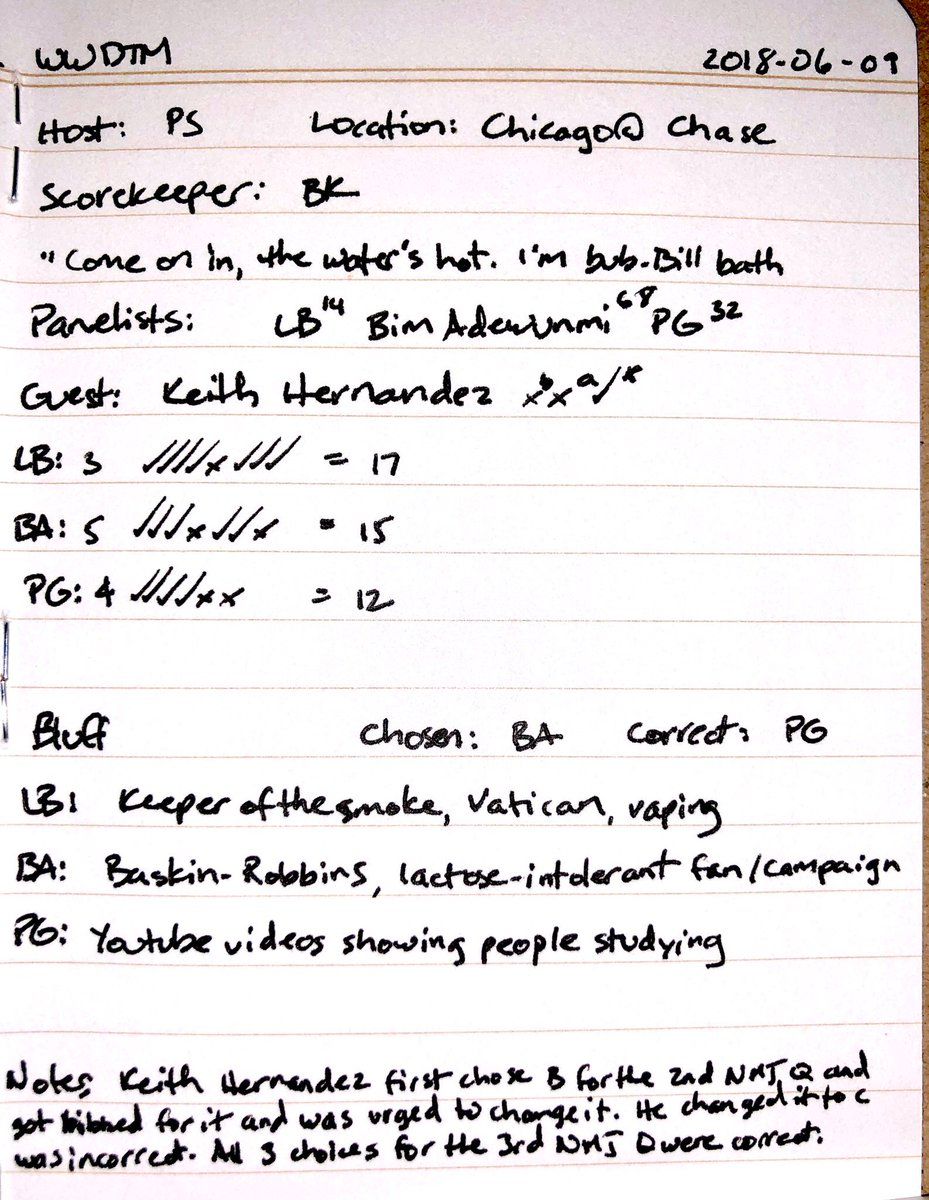 WWDTM 2018-06-09
Host: PS Location: Chicago@ Chase
Scorekeeper: BK
"Come on in, the water's hot. I'm bub-Bill bath
Panelists: LB 14 Bim Adewunmi 68 PG 32
Guest: Keith Hernandez
LB: 3 ////x/// = 17
BA: 5 ///x//x = 15
PG: 4 ////xx = 12
Bluff Chosen: BA Correct: PG
LB: Keeper of the smoke, Vatican, vaping
BA: Baskin-Robbins, lactose-intolerant fan/campaign
PG: Youtube videos showing people studying
Notes: Keith Hernandez first chose B for the 2nd NMJ Q and
got for it and was urged to change it. He changed it to C
was incorrect. All 3 choices for the 3rd NMJ Q were correct.